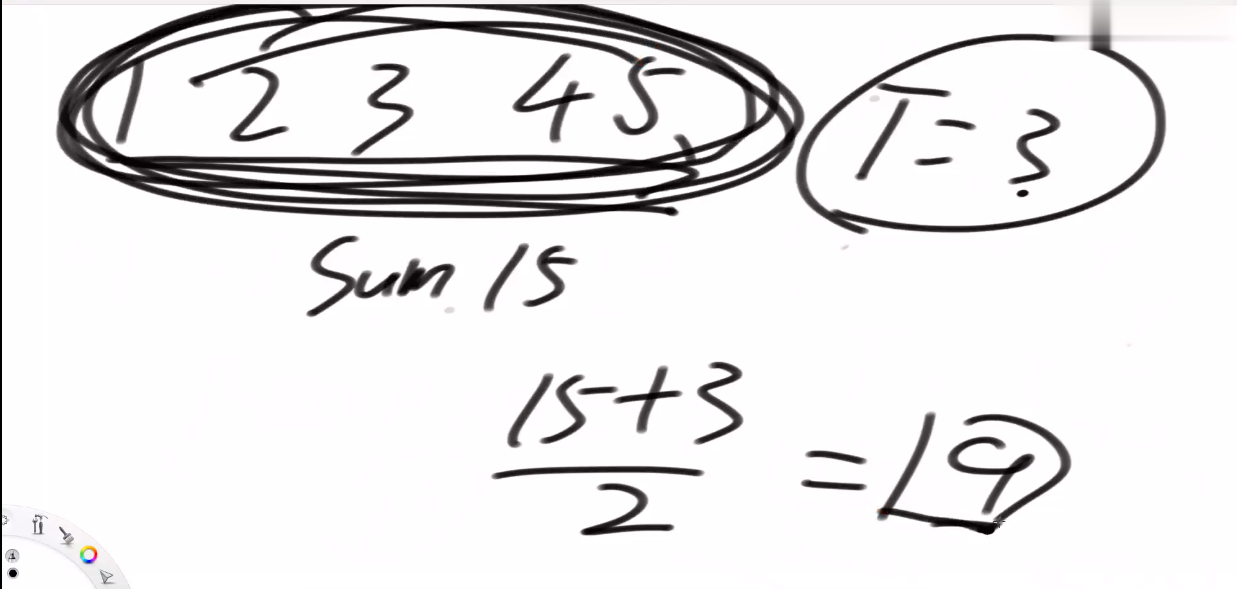 1 2 3 4 5 T = 3
Sum 15
15+3
= 9
2